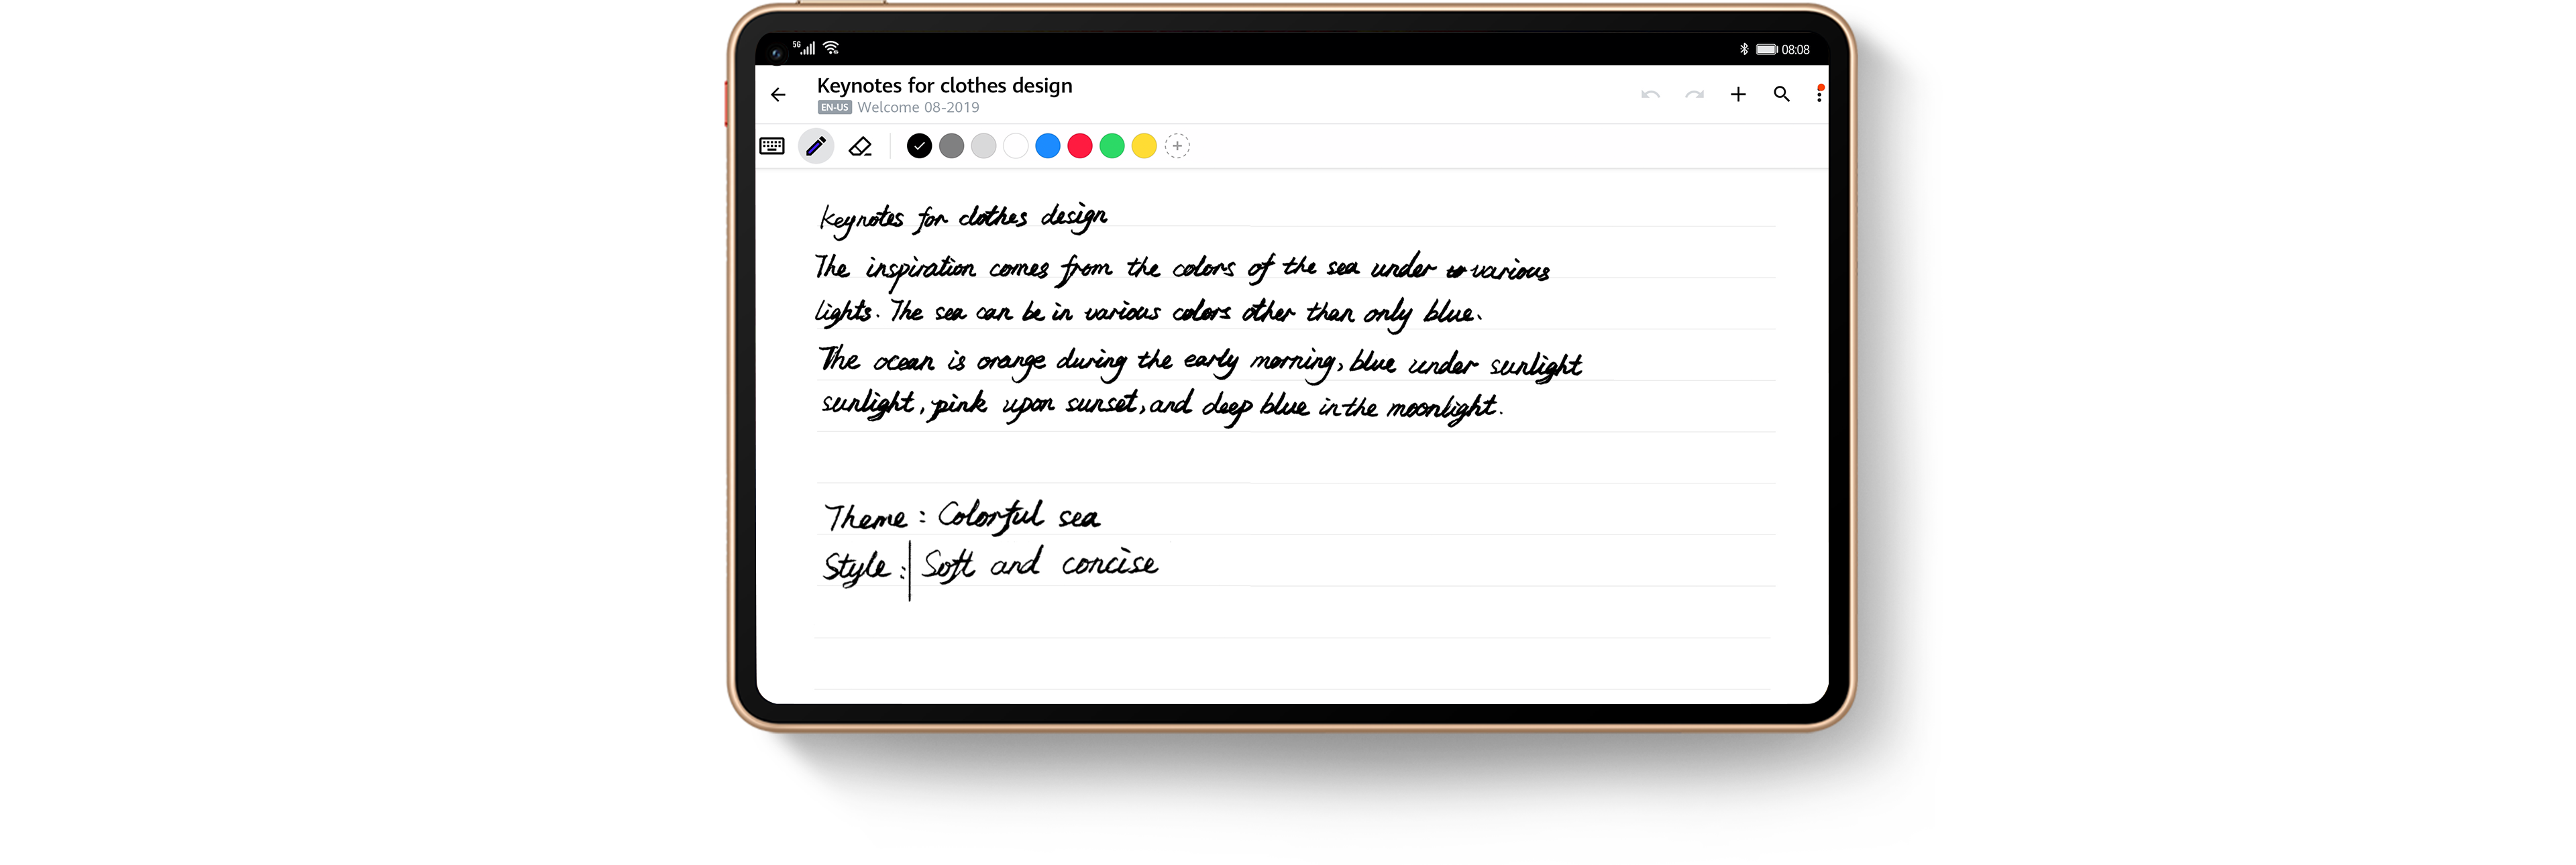 5G 08:08
Keynotes for clothes design
EN-US Welcome 08-2019
Keynotes for clothes design
The inspiration comes from the colors of the sea under various
lights. The sea can be in various colors other than only blue.
The ocean is orange during the early morning, blue under sunlight
sunlight, pink upon sunset, and deep blue in the moonlight.
Theme : Colorful sea
Style : | Soft and concise